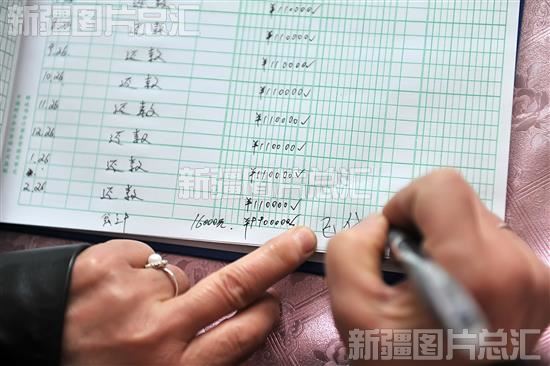 新疆图片总汇
新疆图片总汇
¥110000✓
还款 ¥110000✓
9.26 还款 ¥110000✓
10.26 还款 ¥110000✓
11.26 还款 ¥110000✓
12.26 还款 ¥110000✓
1.26 还款 ¥110000✓
新疆图片总汇
2.26 还款 ¥110000✓
16000元. ¥990000✓
新疆图片总汇